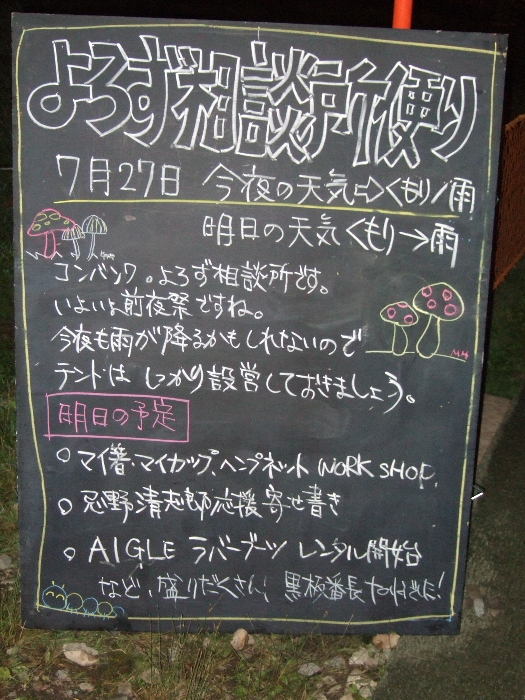 よろず相談所便り
7月27日 今夜の天気⇨くもり/雨
明日の天気 くもり→雨
コンバンワ。よろず相談所です。
いよいよ前夜祭ですね。
今夜も雨が降るかもしれないので
テントはしっかり設営しておきましょう。
明日の予定
○マイ箸・マイカップ、ヘンプネット WORK SHOP.
○忌野清志郎応援寄せ書き
○AIGLE ラバーブーツ レンタル開始
など、盛りだくさん、黒板番長